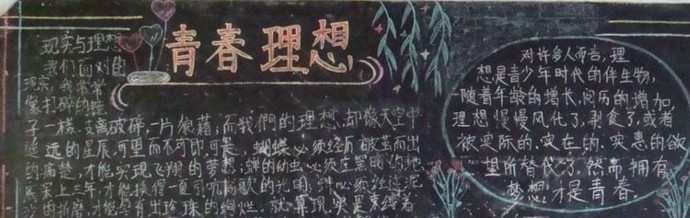 青春理想
现实与理想
我们面对自
现实，我常常
像打碎的镜
子一样，支离破碎，一片狼藉，而我們的理想，却像天空中
遥远的星辰，可望而不可即，可是，蝴蝶必须经历破茧而出
的痛楚，才能实现飞翔的梦想，蝉的幼虫必须在黑暗的地
底呆上三年，才能换得一夏引吭高歌的光阴，蚌必须经过泥
沙的折磨，才能孕育出珍珠的绚烂。就算现实是束缚着
对许多人而言，理
想是青少年时代的伴生物，
随着年龄的增长，阅历的增加，
理想慢慢风化了，剥食了，或者
被实际的，实在的，实惠的欲
望所替代了，然而，拥有
梦想才是青春